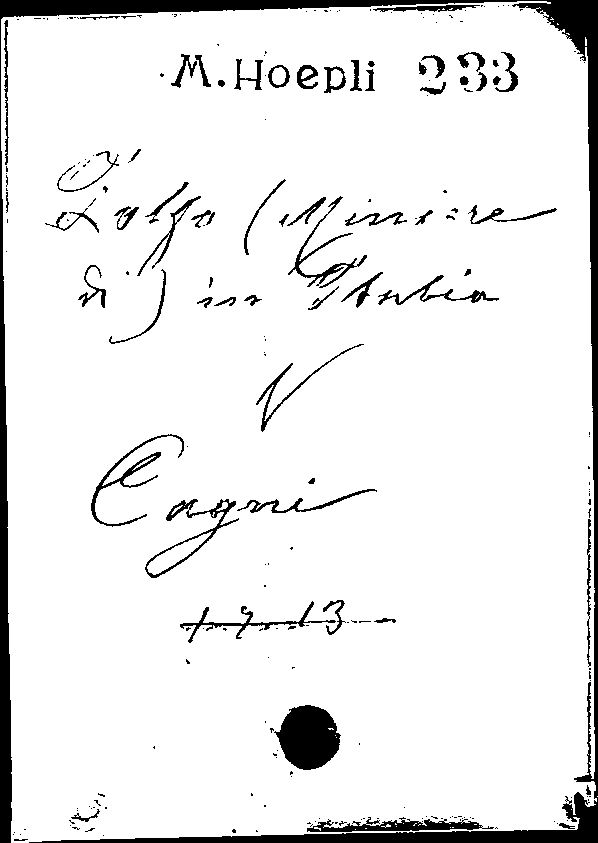 M. Hoepli 233
Zolfo (Miniere
di) in Italia
V
Cagni
1-7-13